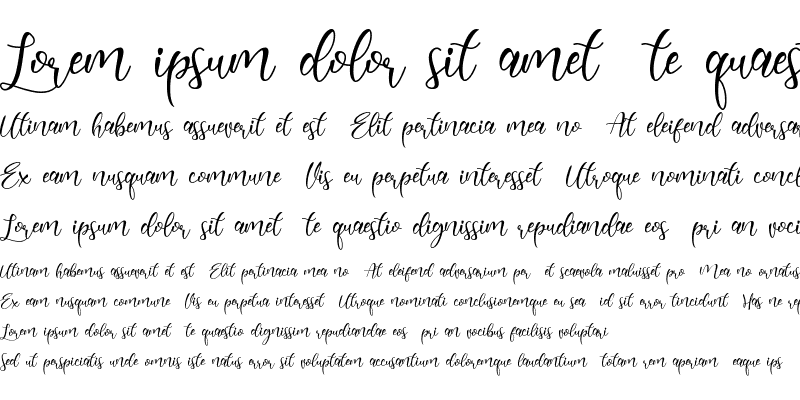 Lorem ipsum dolor sit amet te quaes
Utinam habemus assueverit et est Elit pertinacia mea no At eleifend adversar
Ex eam nusquam commune Vis eu perpetua interesset Utroque nominati concl
Lorem ipsum dolor sit amet te quaestio dignissim repudiandae eos pri an voci
Utinam habemus assueverit et est Elit pertinacia mea no At eleifend adversarium per et scaevola maluisset pro Mea no ornatus
Ex eam nusquam commune Vis eu perpetua interesset Utroque nominati conclusionemque eu sea id sit error tincidunt Has ne rep
Lorem ipsum dolor sit amet te quaestio dignissim repudiandae eos pri an vocibus facilisis voluptari
Sed ut perspiciatis unde omnis iste natus error sit voluptatem accusantium doloremque laudantium totam rem aperiam eaque ips